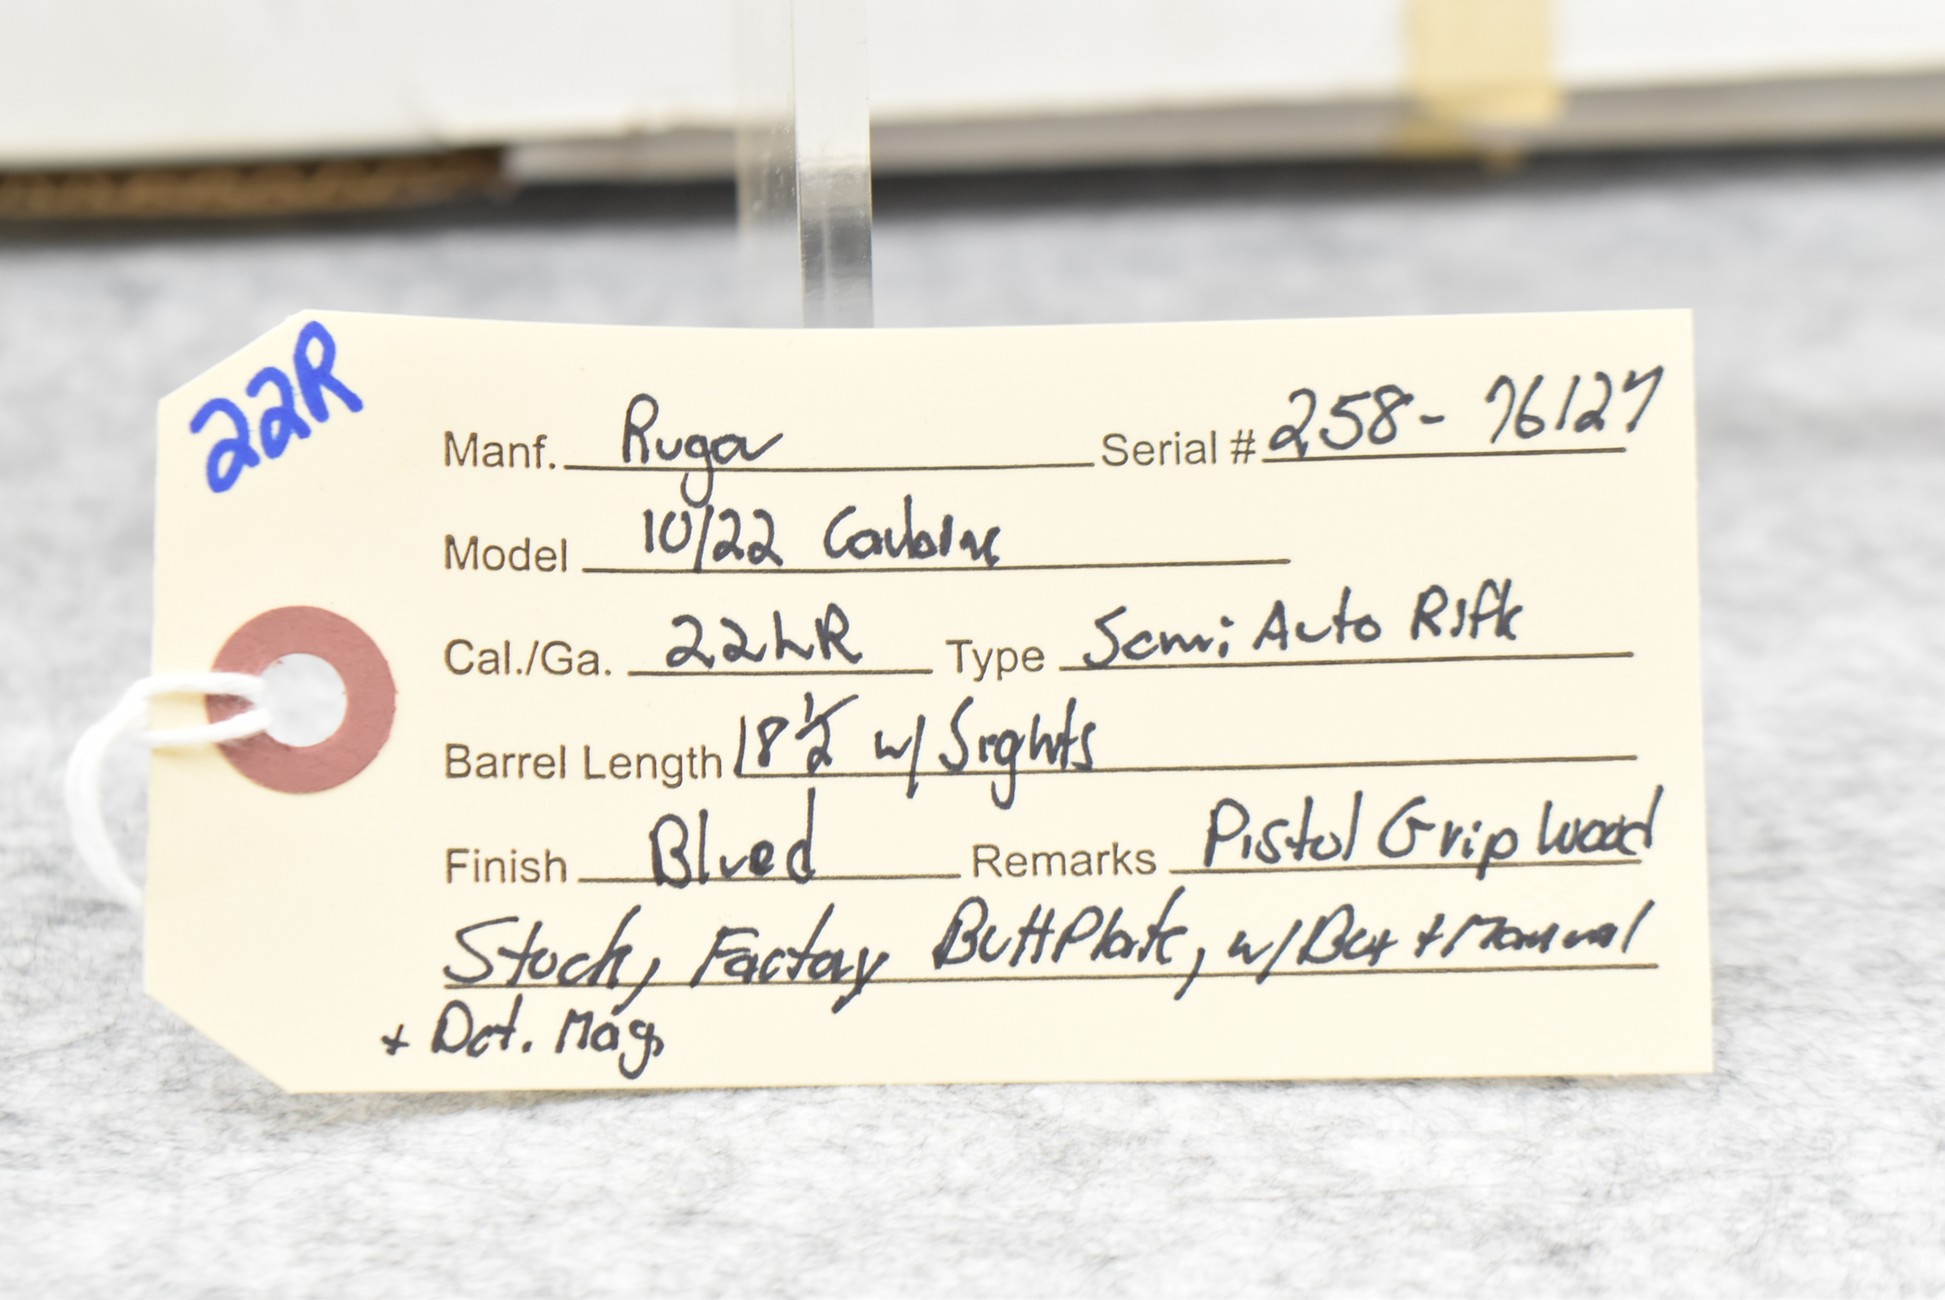 22R
Manf. Ruger Serial # 258-76127
Model 10/22 Carbine
Cal./Ga. 22LR Type Semi Auto Rifle
Barrel Length 18 1/2 w/ Sights
Finish Blued Remarks Pistol Grip Wood
Stock, Factory Buttplate, w/ Box + Manual
+ Det. Mag.